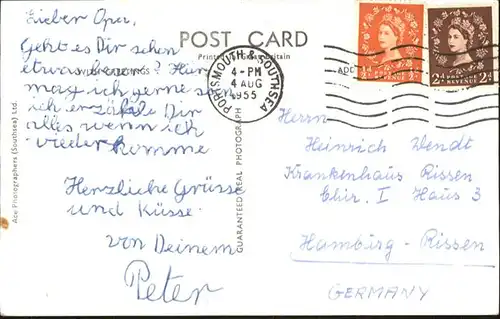 Lieber Opa,
Geht es Dir schon
etwas besser? Hier
mag ich gerne sein
ich erzähle Dir
alles wenn ich
wieder komme
Herzliche Grüsse
und Küsse
von Deinem
Peter
POST CARD
GREETINGS
4-PM
4 AUG
1955
PORTSMOUTH & SOUTHSEA
GUARANTEED REAL PHOTOGRAPH
Ace Photographers (Southsea) Ltd.
ACE
POSTAGE
REVENUE
2D
Herrn
Heinrich Wendt
Krankenhaus Rissen
Chir. I Haus 3
Hamburg-Rissen
GERMANY